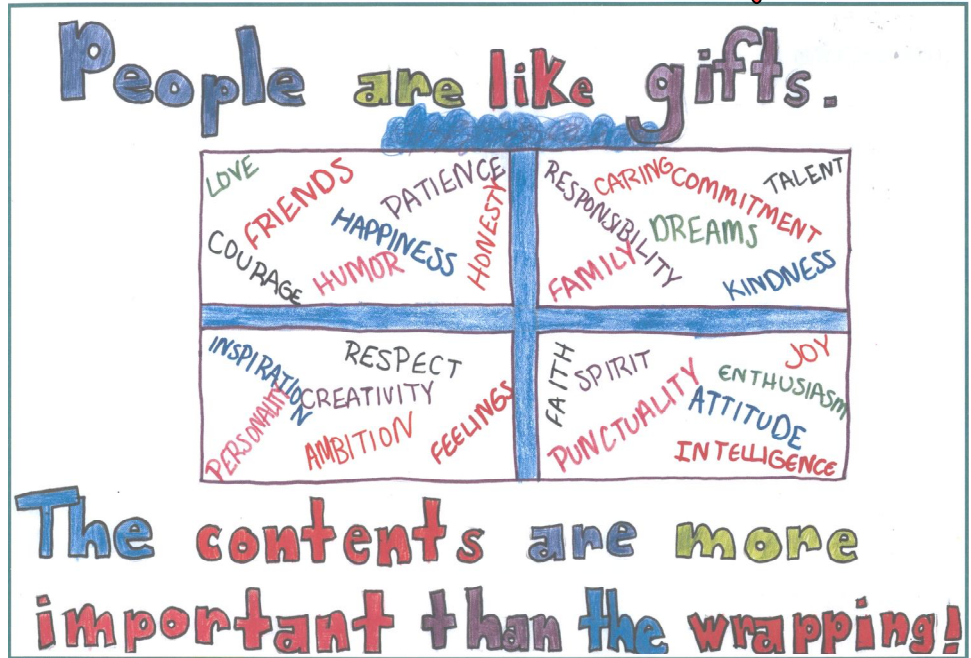 People are like gifts.
LOVE
FRIENDS
PATIENCE
HONESTY
HAPPINESS
COURAGE
HUMOR
RESPONSIBILITY
CARING
COMMITMENT
TALENT
DREAMS
FAMILY
KINDNESS
INSPIRATION
RESPECT
PERSONALITY
CREATIVITY
AMBITION
FEELINGS
FAITH
SPIRIT
PUNCTUALITY
JOY
ENTHUSIASM
ATTITUDE
INTELLIGENCE
The contents are more
important than the wrapping!